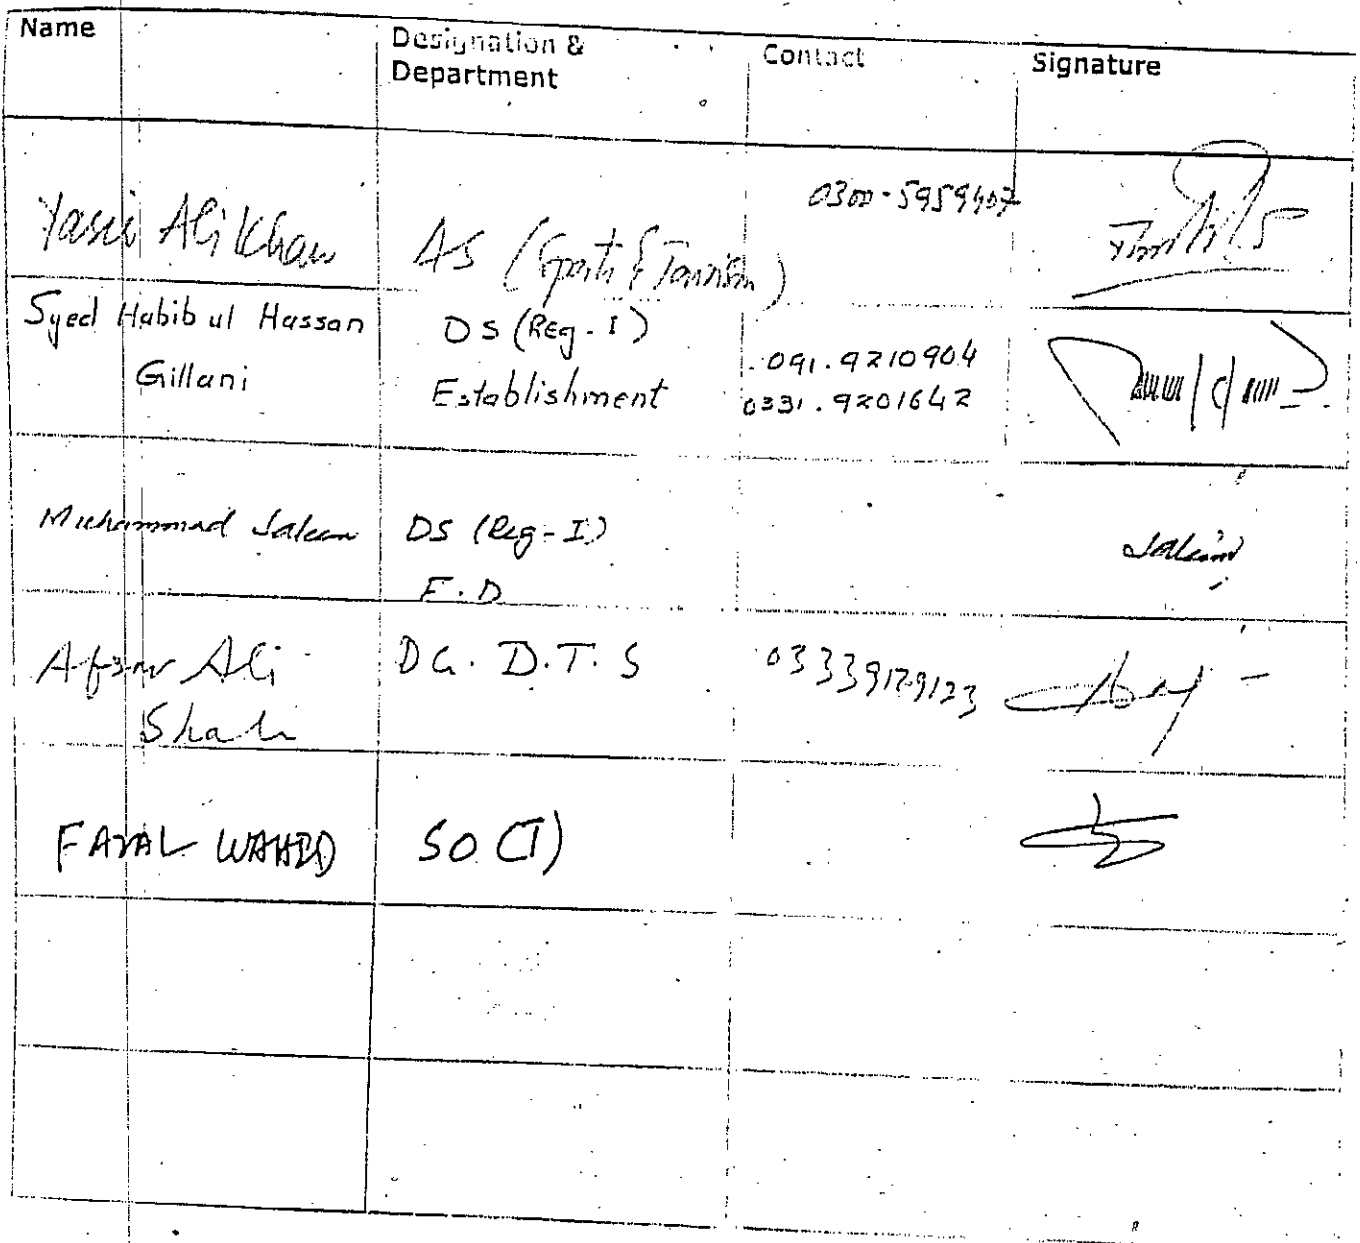 Name
Designation &
Department
Contact
Signature
Yasir Ali Khan
AS (Sports & Tourism)
0300-5959407
Syed Habib ul Hassan
Gillani
DS (Reg-I)
Establishment
091.9210904
0331.9201642
Muhammad Saleem
DS (Reg-I)
F.D
Saleem
Afsar Ali
Shah
DG. D.T.S
03339129123
FAZAL WAHED
SO (T)